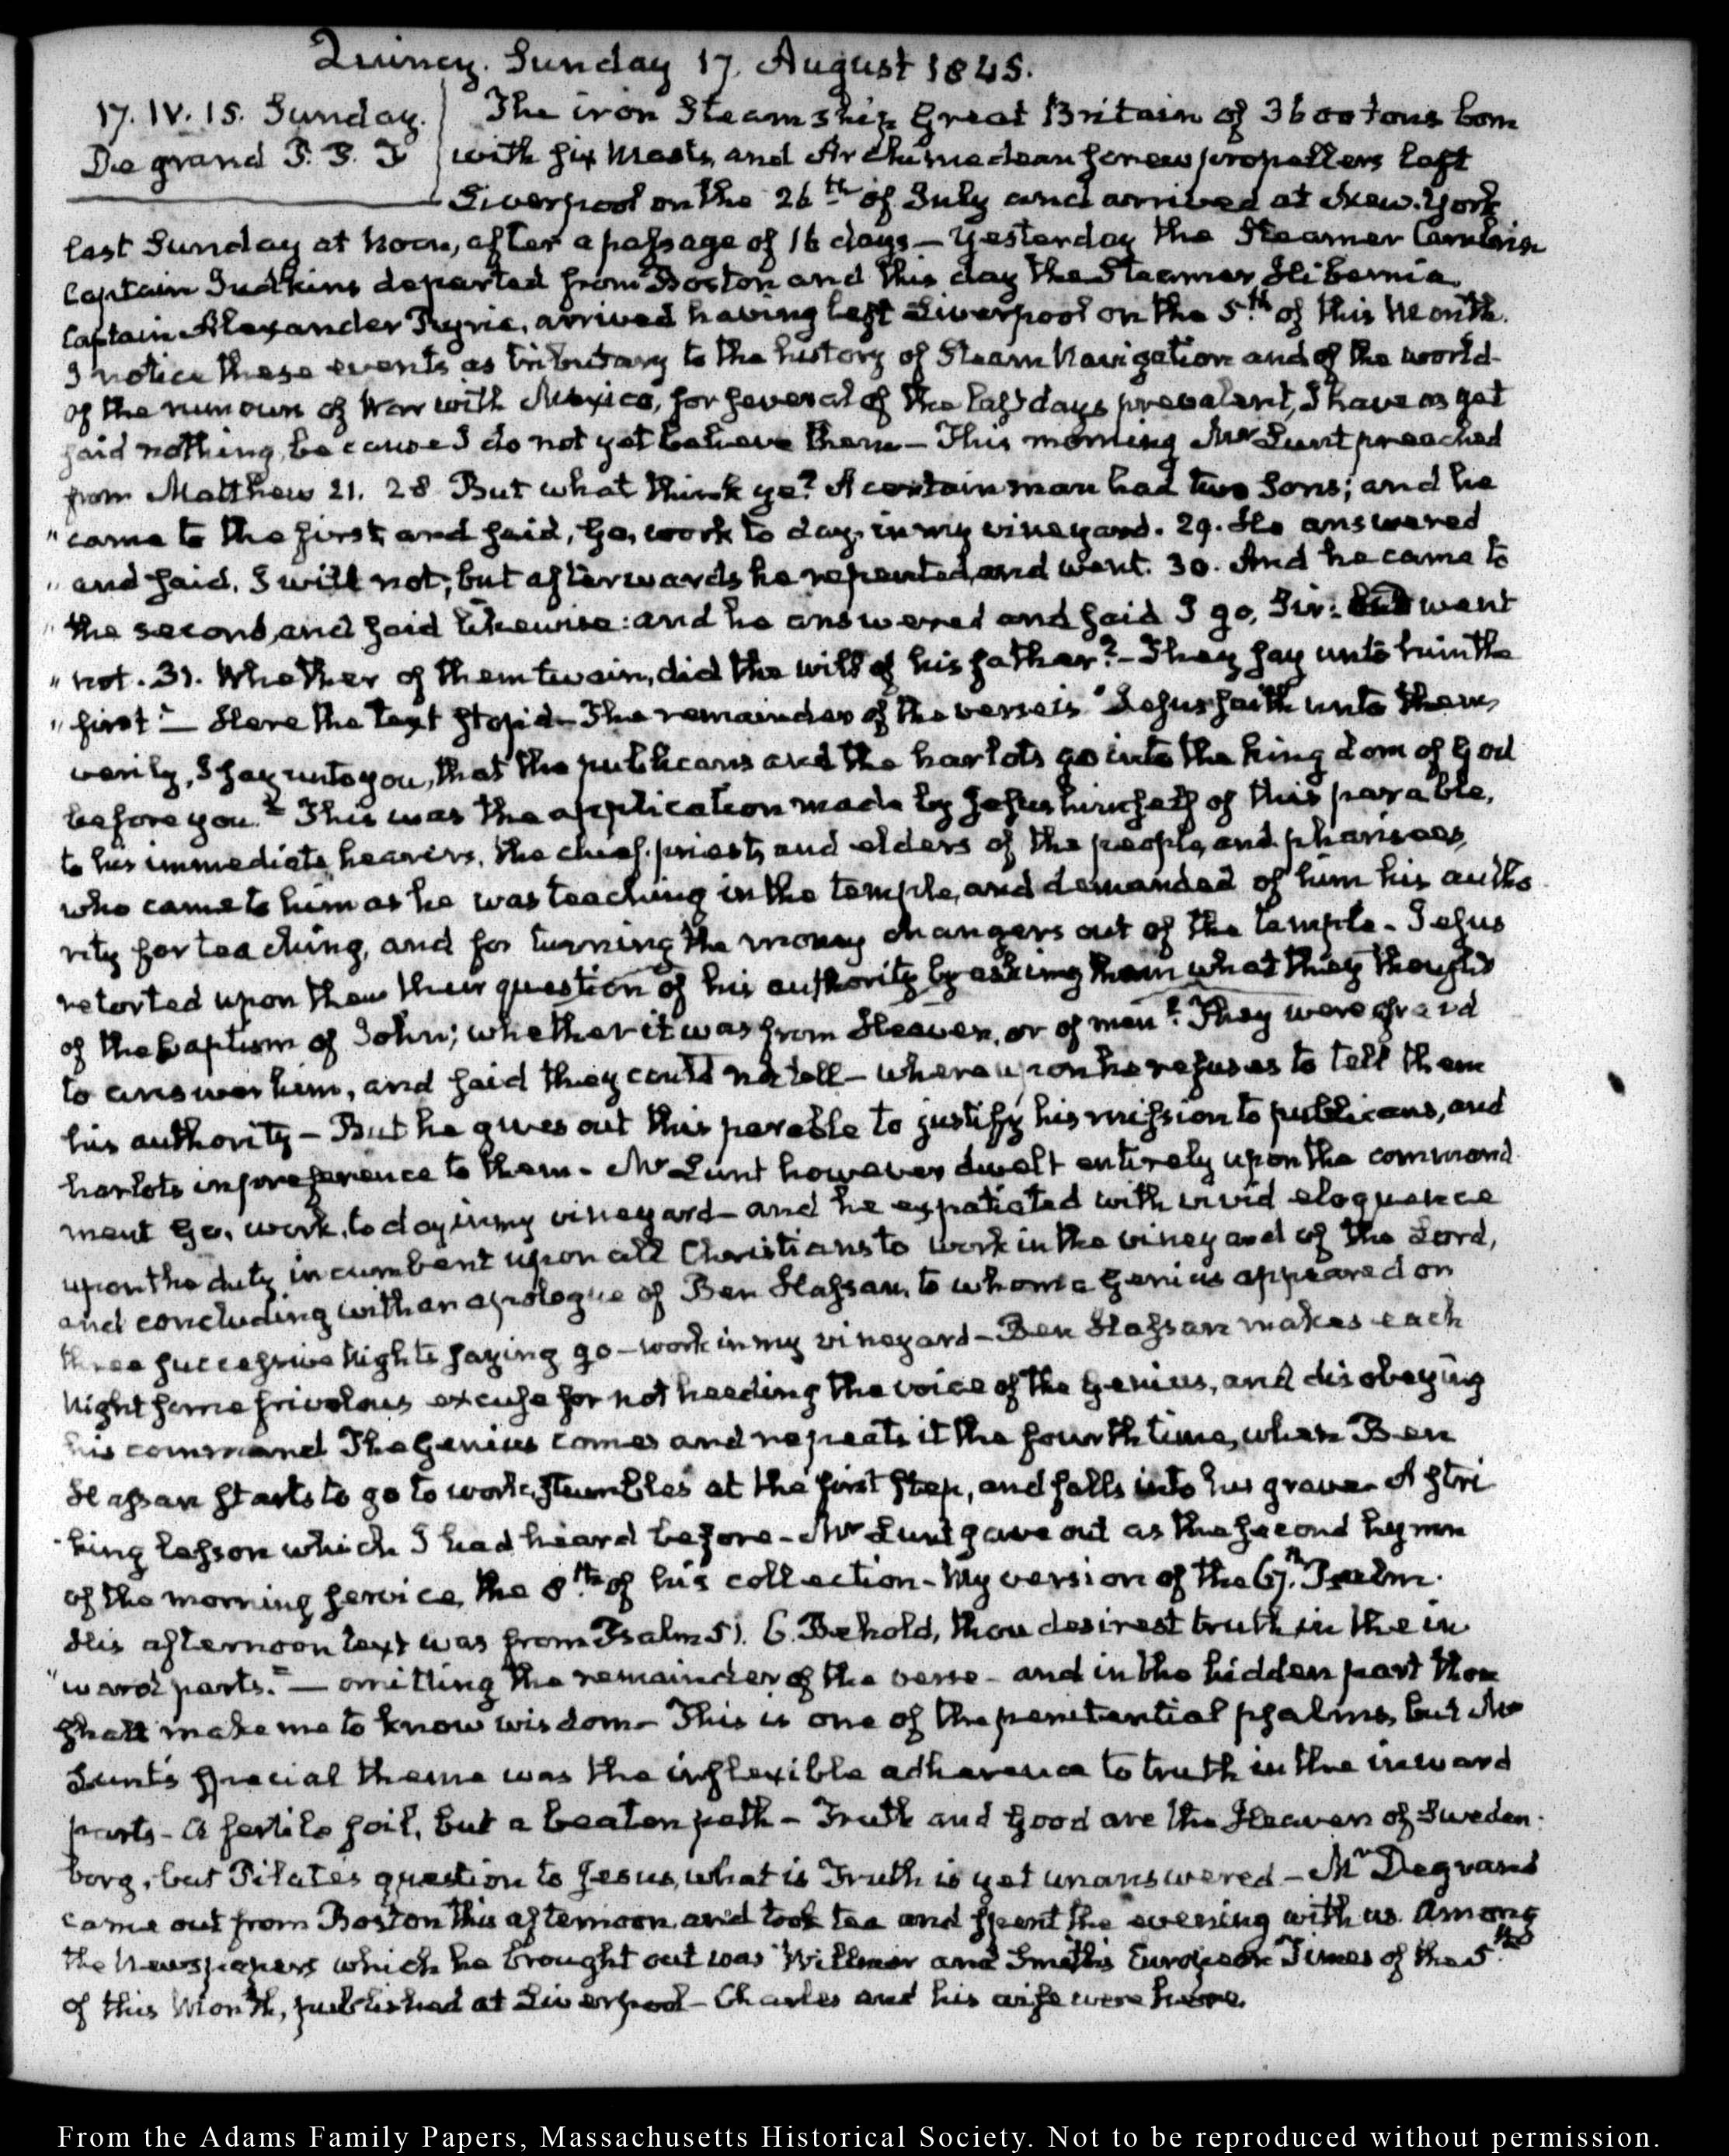 Quincy. Sunday 17. August 1845.
17. IV. 15. Sunday.
Degrand P. P. F
The iron Steamship Great Britain of 3600 tons
with six Masts, and Archimedean screw propellers left
Liverpool on the 26th of July and arrived at New-York
last Sunday at Noon, after a passage of 16 days — Yesterday the Steamer Cambria
Captain Judkins departed from Boston and this day the Steamer Hibernia
Captain Alexander Ryrie, arrived having left Liverpool on the 5th of this Month.
I notice these events as tributary to the history of Steam Navigation and of the world-
of the rumours of War with Mexico, for several of the last days prevalent, I have as yet
said nothing, because I do not yet believe them — This morning Mr Lunt preached
from Matthew 21. 28 But what think ye? A certain man had two Sons; and he
" came to the first, and said, Go, work to day, in my vineyard. 29. He answered
" and said, I will not; but afterwards he repented, and went. 30. And he came to
" the second, and said likewise: and he answered and said I go, Sir: went
" not. 31. Whether of them twain, did the will of his father? — They say unto him the
" first" — Here the text stop'd — The remainder of the verse is "Jesus saith unto them,
verily, I say unto you, that the publicans and the harlots go into the kingdom of God
before you." This was the application made by Jesus himself of this parable,
to his immediate hearers, the chief-priests, and elders of the people, and pharisees,
who came to him as he was teaching in the temple, and demanded of him his autho
rity for teaching, and for turning the money changers out of the temple - Jesus
retorted upon them their question of his authority by asking them what they thought
of the baptism of John; whether it was from Heaven, or of men? They were afraid
to answer him, and said they could not tell — whereupon he refuses to tell them
his authority — But he gives out this parable to justify his mission to publicans, and
harlots in preference to them - Mr Lunt however dwelt entirely upon the command
ment Go, work, to day in my vineyard — and he expatiated with vivid eloquence
upon the duty incumbent upon all Christians to work in the vineyard of the Lord,
and concluding with an apologue of Ben Hassan, to whom a Genius appeared on
three successive nights saying go — work in my vineyard — Ben Hassan makes each
night some frivolous excuse for not heeding the voice of the Genius, and disobeying
his command The Genius comes and repeats it the fourth time, when Ben
Hassan starts to go to work, stumbles at the first step, and falls into his grave. A stri
-king lesson which I had heard before - Mr Lunt gave out as the second hymn
of the morning service, the 8th of his collection - My version of the 67th Psalm.
His afternoon text was from Psalm 51. 6. Behold, thou desirest truth in the in
" ward parts." — omitting the remainder of the verse - and in the hidden part thou
shalt make me to know wisdom — This is one of the penitential psalms, but Mr
Lunt's special theme was the inflexible adherence to truth in the inward
parts - A fertile soil, but a beaten path - Truth and Good are the Heaven of Sweden-
borg, but Pilate's question to Jesus, what is Truth is yet unanswered — Mr Degrand
came out from Boston this afternoon, and took tea and spent the evening with us. Among
the Newspapers which he brought out was Willmer and Smith's European Times of the 5th
of this Month, published at Liverpool - Charles and his wife were here.
From the Adams Family Papers, Massachusetts Historical Society. Not to be reproduced without permission.